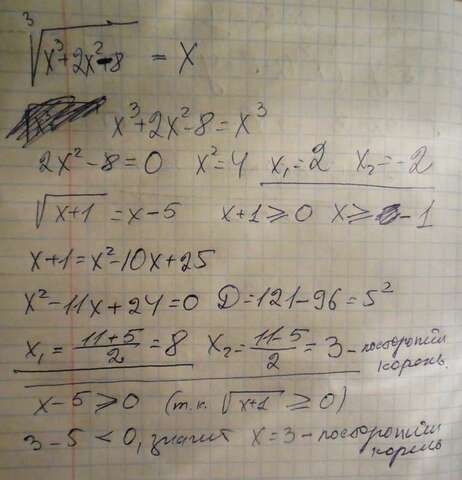 ∛(x³+2x²-8) = x
x³+2x²-8=x³
2x²-8=0 x²=4 x₁=2 x₂=-2
√(x+1) = x-5 x+1≥0 x≥-1
x+1=x²-10x+25
x²-11x+24=0 D=121-96=5²
x₁ = (11+5)/2 = 8 x₂ = (11-5)/2 = 3 - посторонний корень.
x-5≥0 (т.к. √(x+1) ≥0)
3-5<0, значит x=3-посторонний корень